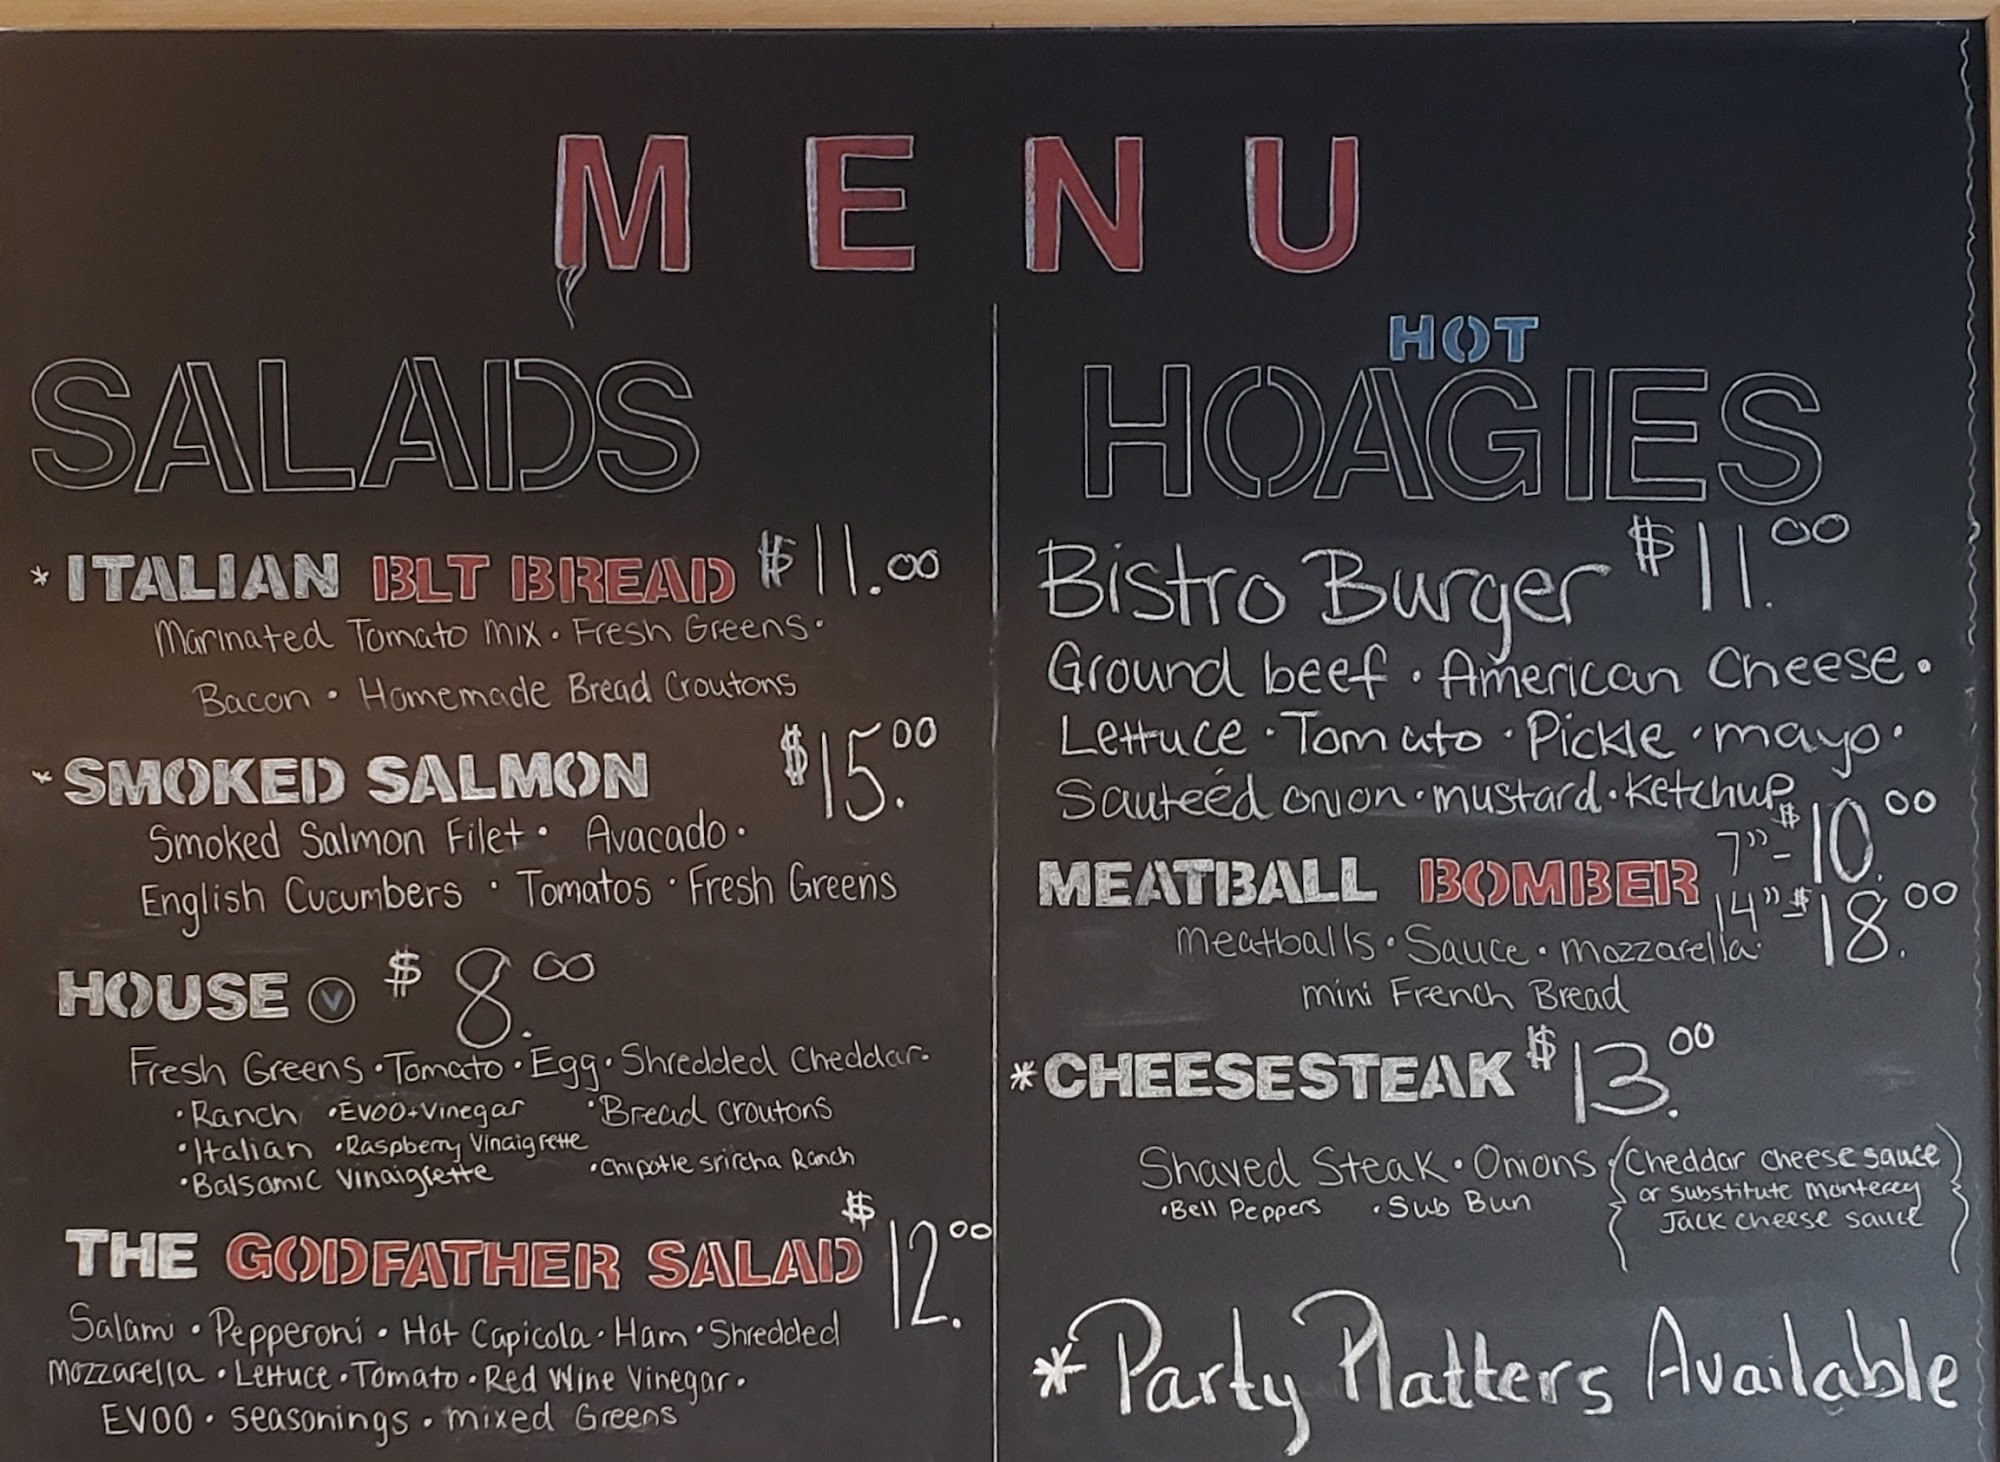 MENU
SALADS
* ITALIAN BLT BREAD $11.00
Marinated Tomato Mix • Fresh Greens •
Bacon • Homemade Bread Croutons
* SMOKED SALMON $15.00
Smoked Salmon Filet • Avacado •
English Cucumbers • Tomatos • Fresh Greens
HOUSE V $8.00
Fresh Greens • Tomato • Egg • Shredded Cheddar •
• Ranch • EVOO + Vinegar • Bread Croutons
• Italian • Raspberry Vinaigrette
• Balsamic Vinaigrette • Chipotle srircha Ranch
THE GODFATHER SALAD $12.00
Salami • Pepperoni • Hot Capicola • Ham • Shredded
Mozzarella • Lettuce • Tomato • Red Wine Vinegar •
EVOO • seasonings • mixed Greens
HOT
HOAGIES
Bistro Burger $11.00
Ground beef • American Cheese •
Lettuce • Tomato • Pickle • mayo •
Sauteéd onion • mustard • Ketchup
MEATBALL BOMBER 7" - $10.00
14" - $18.00
Meatballs • Sauce • Mozzarella •
mini French Bread
* CHEESESTEAK $13.00
Shaved Steak • Onions • (Cheddar cheese sauce
• Bell Peppers • Sub Bun or substitute Monterey
Jack cheese sauce)
* Party Platters Available